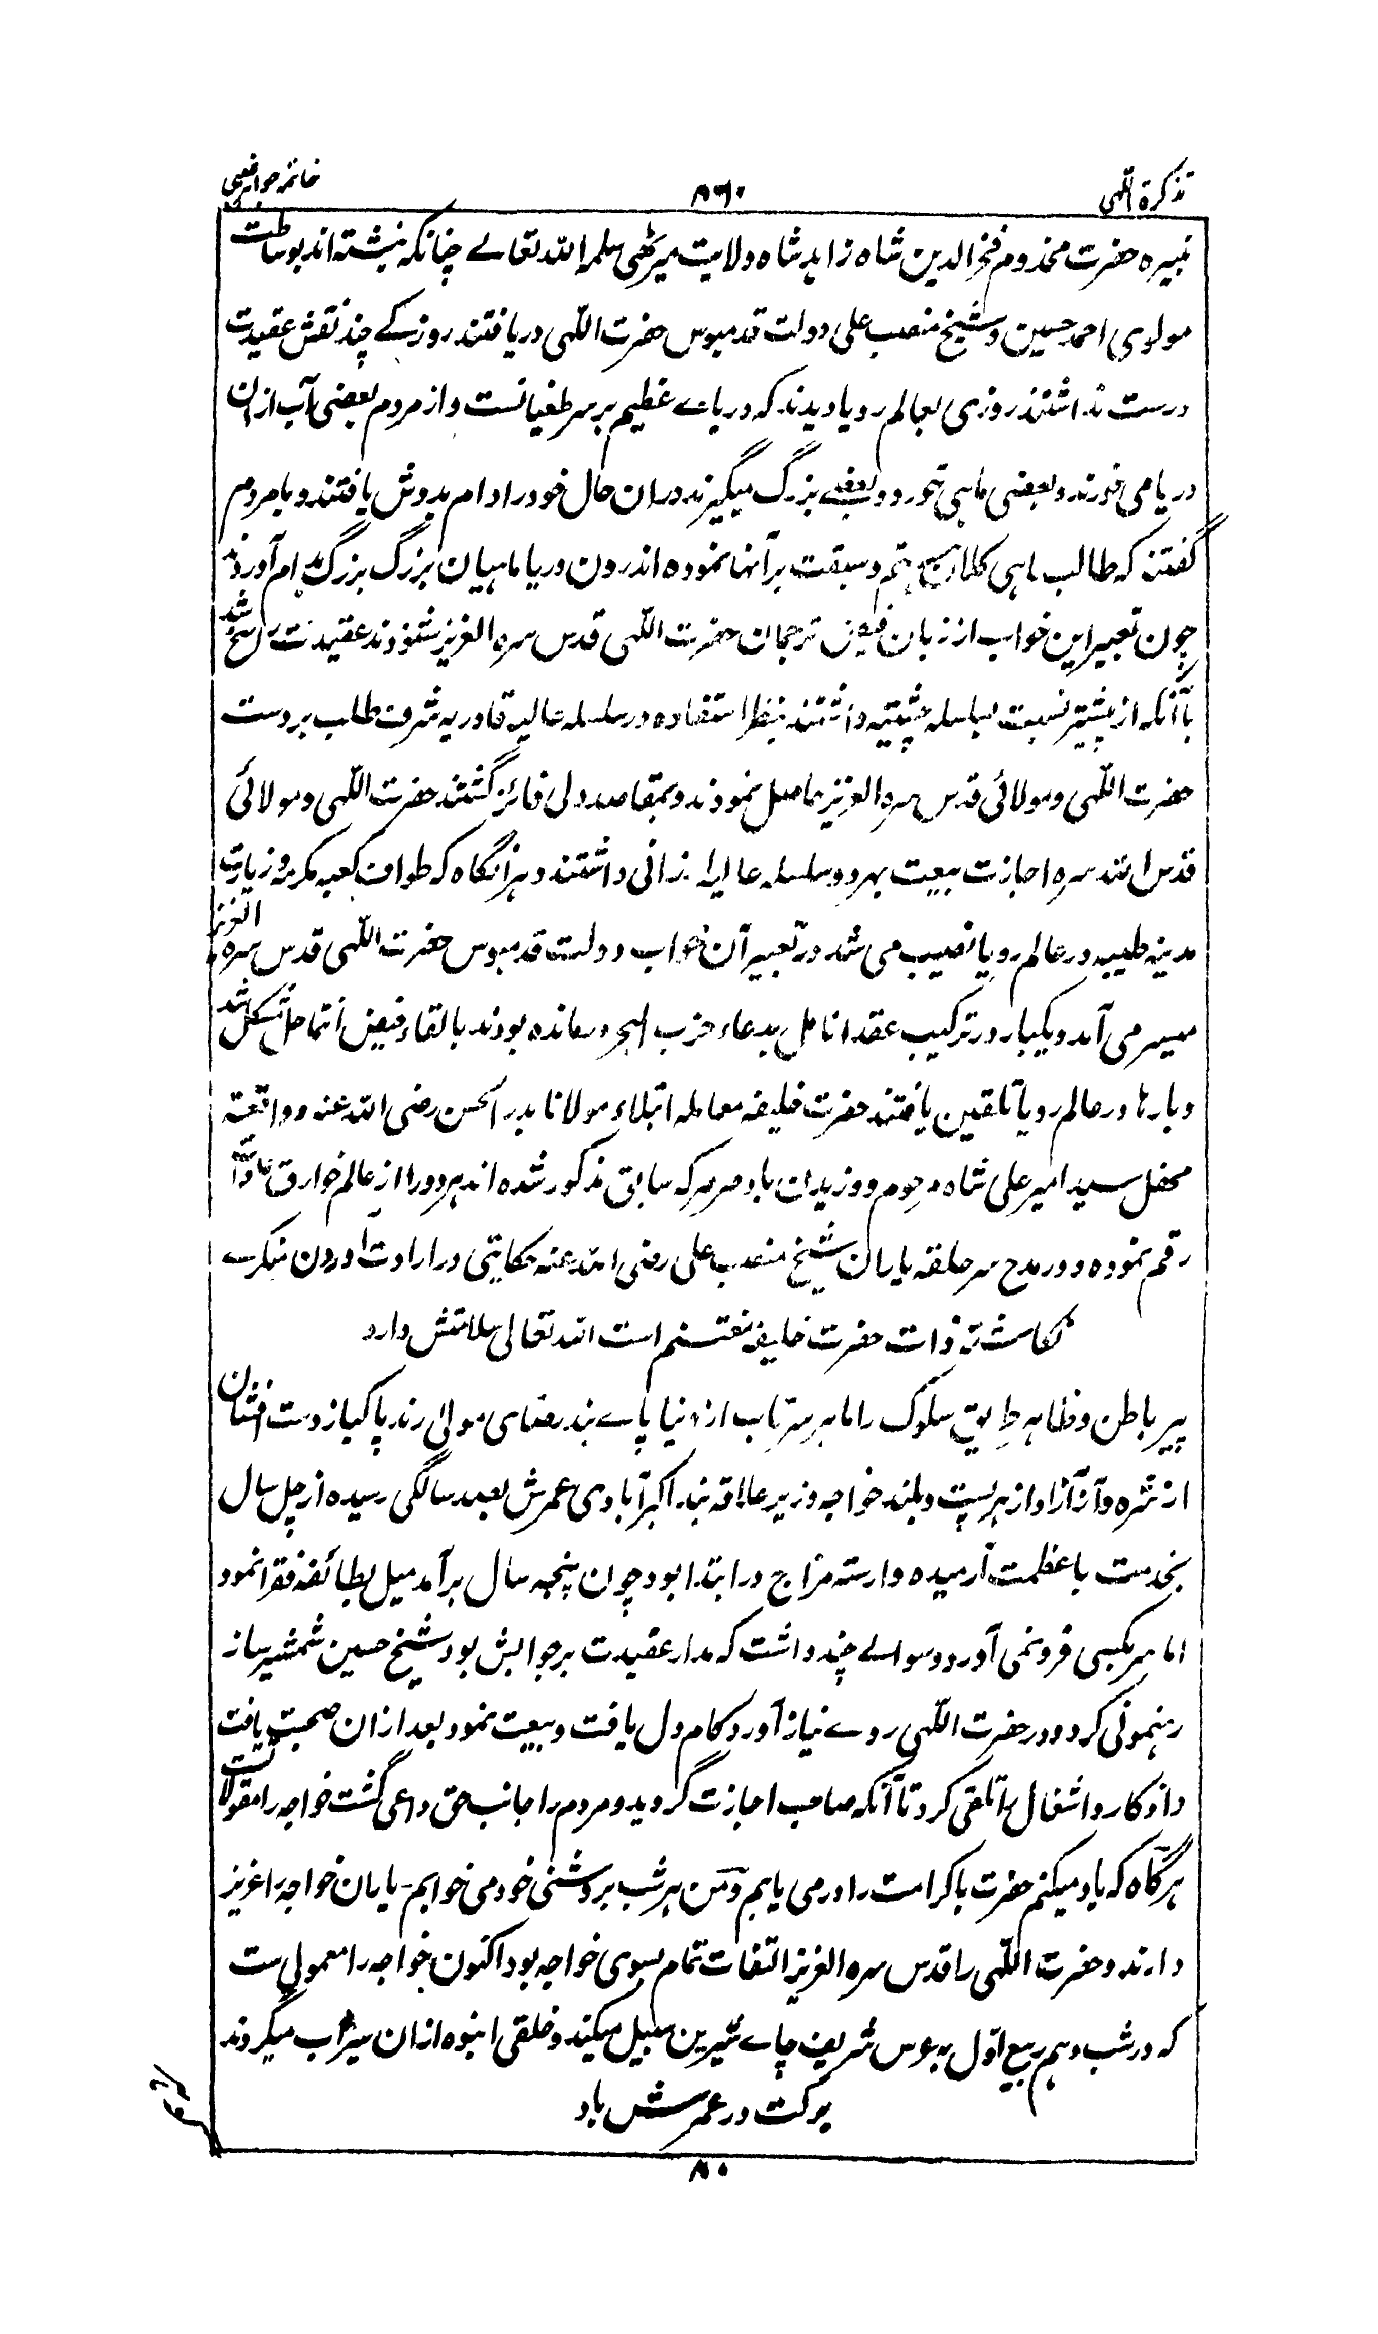 تذکرة اللهی
۸۶۰
خاتمه
نبیره حضرت مخدوم فخر الدین شاه زاهد شاه ولایت میرٹھی سلمہ الله تعالے چنانکہ نبشتہ اند بوساطت
مولوی احمد حسین و شیخ منصب علی دولت قدمبوس حضرت اللهی دریافتند روزکے چند نقش عقیدت
درست نداشتند روزی بعالم رویا دیدند که دریاے عظیم بر سر طغیانست و از مردم بعضی آب ازان
دریا می خورند و بعضی ماہی خورد و بعضے بزرگ میگیرند دران حال خود را دام بدوش یافتند و با مردم
گفتند که طالب ماہی کلان ہستم و سبقت بر آنها نموده اندرون دریا ماہیان بزرگ بزرگ بدام آوردند
چون تعبیر این خواب از زبان فیض ترجمان حضرت اللهی قدس سره العزیز شنودند عقیدت راسخ شد
با آنکه از پیشتر نسبت بسلسله چشتیه داشتند بنظر استفاده در سلسله عالیه قادریه شرف طلب بر دست
حضرت اللهی و مولائی قدس سره العزیز حاصل نمودند و بمقاصد دلی فائز گشتند حضرت اللهی و مولائی
قدس الله سره اجازت بیعت بهر دو سلسله عالیه ارزانی داشتند و هر انگاه که طواف کعبه مکرمه و زیارت
مدینه طیبه در عالم رویا نصیب می شد در تعبیر آن خواب دولت قدمبوس حضرت اللهی قدس سره العزیز
میسر می آمد و یکبار در ترکیب عقد انامل بدعاء حزب البحر درمانده بودند بالقاء فیض انتما حل مشکل شد
و بارها در عالم رویا تلقین یافتند حضرت خلیفه معامله ابتلاء مولانا بدر الحسن رضی الله عنه و واقعۀ
محفل سید امیر علی شاه مرحوم و وزیدن باد صرصر که سابق مذکور شده اند هر دو را از عالم خوارق
رقم نموده و در مدح سر حلقه یاران شیخ منصب علی رضی الله عنه حکایتی در ارادت آوردن
نگاشته ذات حضرت خلیفه مغتنم است الله تعالی سلامتش دارد
پیر باطن و ظاهر طریق سلوک را ماهر سرتاب از دنیا پاے بند رضای مولی رند پاکباز دست افشان
از شره و آز آزاد از هر پست و بلند خواجه وزیر علاقه بند اکبرآبادی عمرش بصد سالگی رسیده از چل سال
بخدمت باعظمت آرمیده وارسته مزاج در ابتدا بود چون پنجه سال بر آمد میل بطائفه فقرا نمود
اما سر بکسی فرو نمی آورد و سوالے چند داشت که مدار عقیدت بر جوابش بود شیخ حسین شمشیر ساز
رهنمونی کرد و در حضرت اللهی روے نیاز آورد کام دل یافت و بیعت نمود بعد ازان صحبت یافت
و اذکار و اشغال را تلقی کرد تا آنکه صاحب اجازت گردید و مردم را جانب حق داعی گشت خواجه را مقولات
هرگاه که یاد میکنم حضرت باکرامت را در می یابم و من هر شب بروشنی خود می خوابم - یاران خواجه را عزیز
دارند و حضرت اللهی را قدس سره العزیز التفات تمام بسوی خواجه بود اکنون خواجه را معمولی ست
که در شب دهم ربیع اوّل به عرس شریف چاے شیرین سبیل میکند و خلقی انبوه ازان سیراب میگردند
برکت در عمرش باد
۸۰